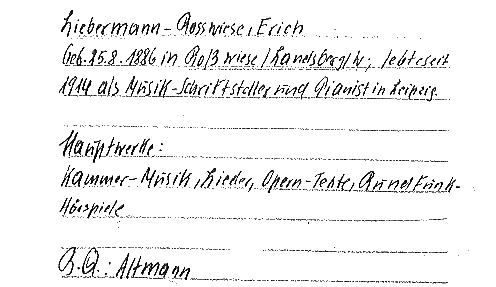 Liebermann-Rosswiese, Erich
Geb. 25.8.1886 in Roßwiese/Landsberg/W; lebte seit
1914 als Musik-Schriftsteller und Pianist in Leipzig.
Hauptwerke:
Kammer-Musik, Lieder, Opern-Texte, Rundfunk-
Hörspiele
B.Q.: Altmann